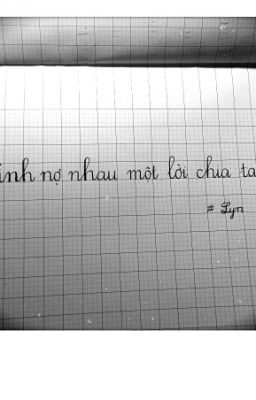 ình nợ nhau một lời chia ta
# Lyn